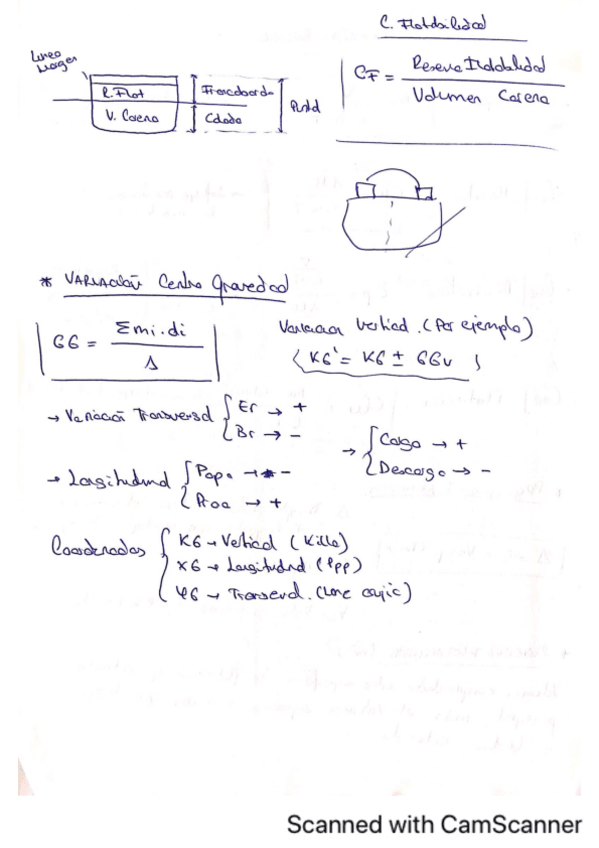 C. Flotabilidad
Linea
Margen
R. Flot
V. Carena
Francobordo
Calado
Puntal
CF = Reserva Flotabilidad / Volumen Carena
* VARIACIÓN Centro Gravedad
GG = Σmi.di / Δ
Variacion Vertical. (Por ejemplo)
KG' = KG ± GGv
→ Variación Transversal { Er → +
Br → -
→ { Carga → +
Descarga → -
→ Longitudinal { Popa → -
Proa → +
Coordenadas { KG → Vertical (Killa)
XG → Longitudinal (Ppp)
YG → Transversal. (Line crujía)
Scanned with CamScanner